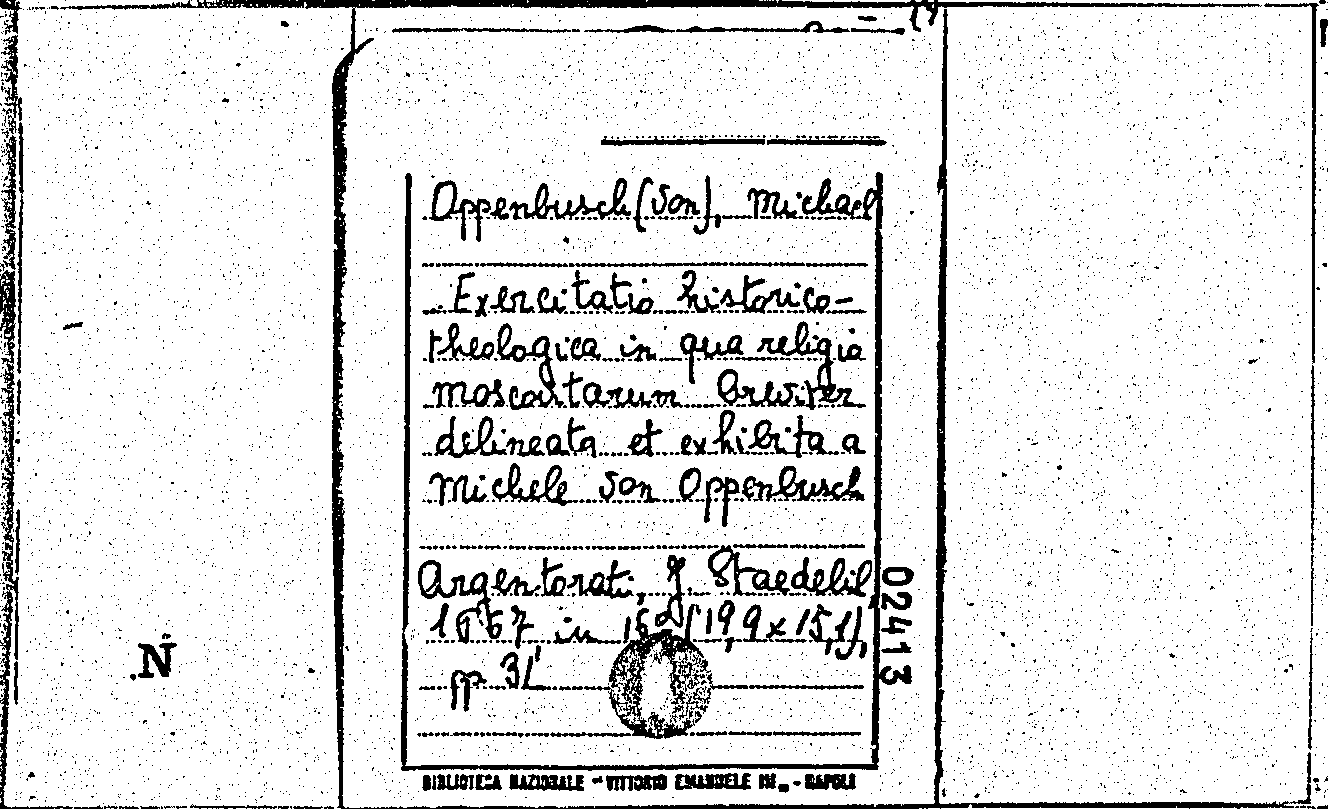 Oppenbusch (von), Michael
Exercitatio historico-
theologica in qua religio
moscovitarum breviter
delineata et exhibita a
Michele von Oppenbusch
Argentorati, J. Staedelil,
1667 in 16º (19,9 x 15,1),
pp 31
02413
N
BIBLIOTECA NAZIONALE - VITTORIO EMANUELE III - NAPOLI